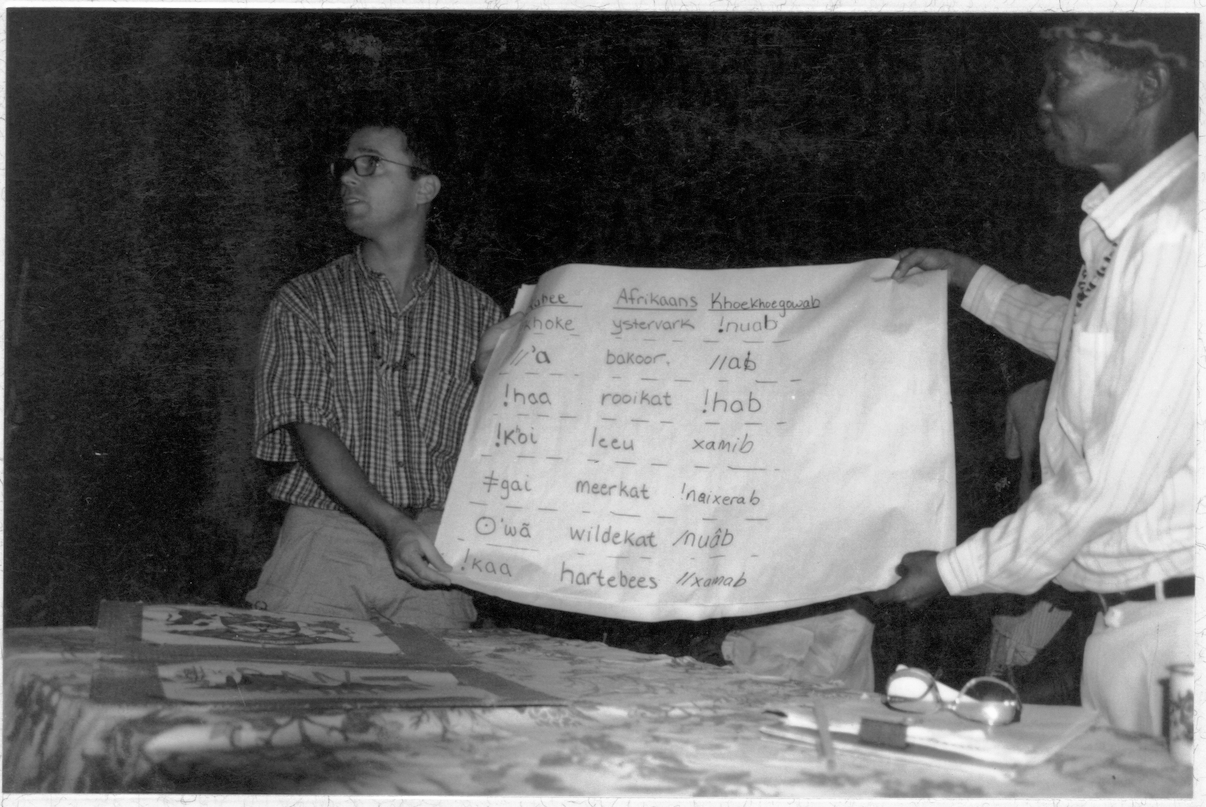 Afrikaans Khoekhoegowab
ystervark !nuab
//'a bakoor. //ab
!haa rooikat !hab
!k'oi leeu xamib
ǂgai meerkat !naixerab
ʘ'wã wildekat /nuôb
!kaa hartebees //xamab